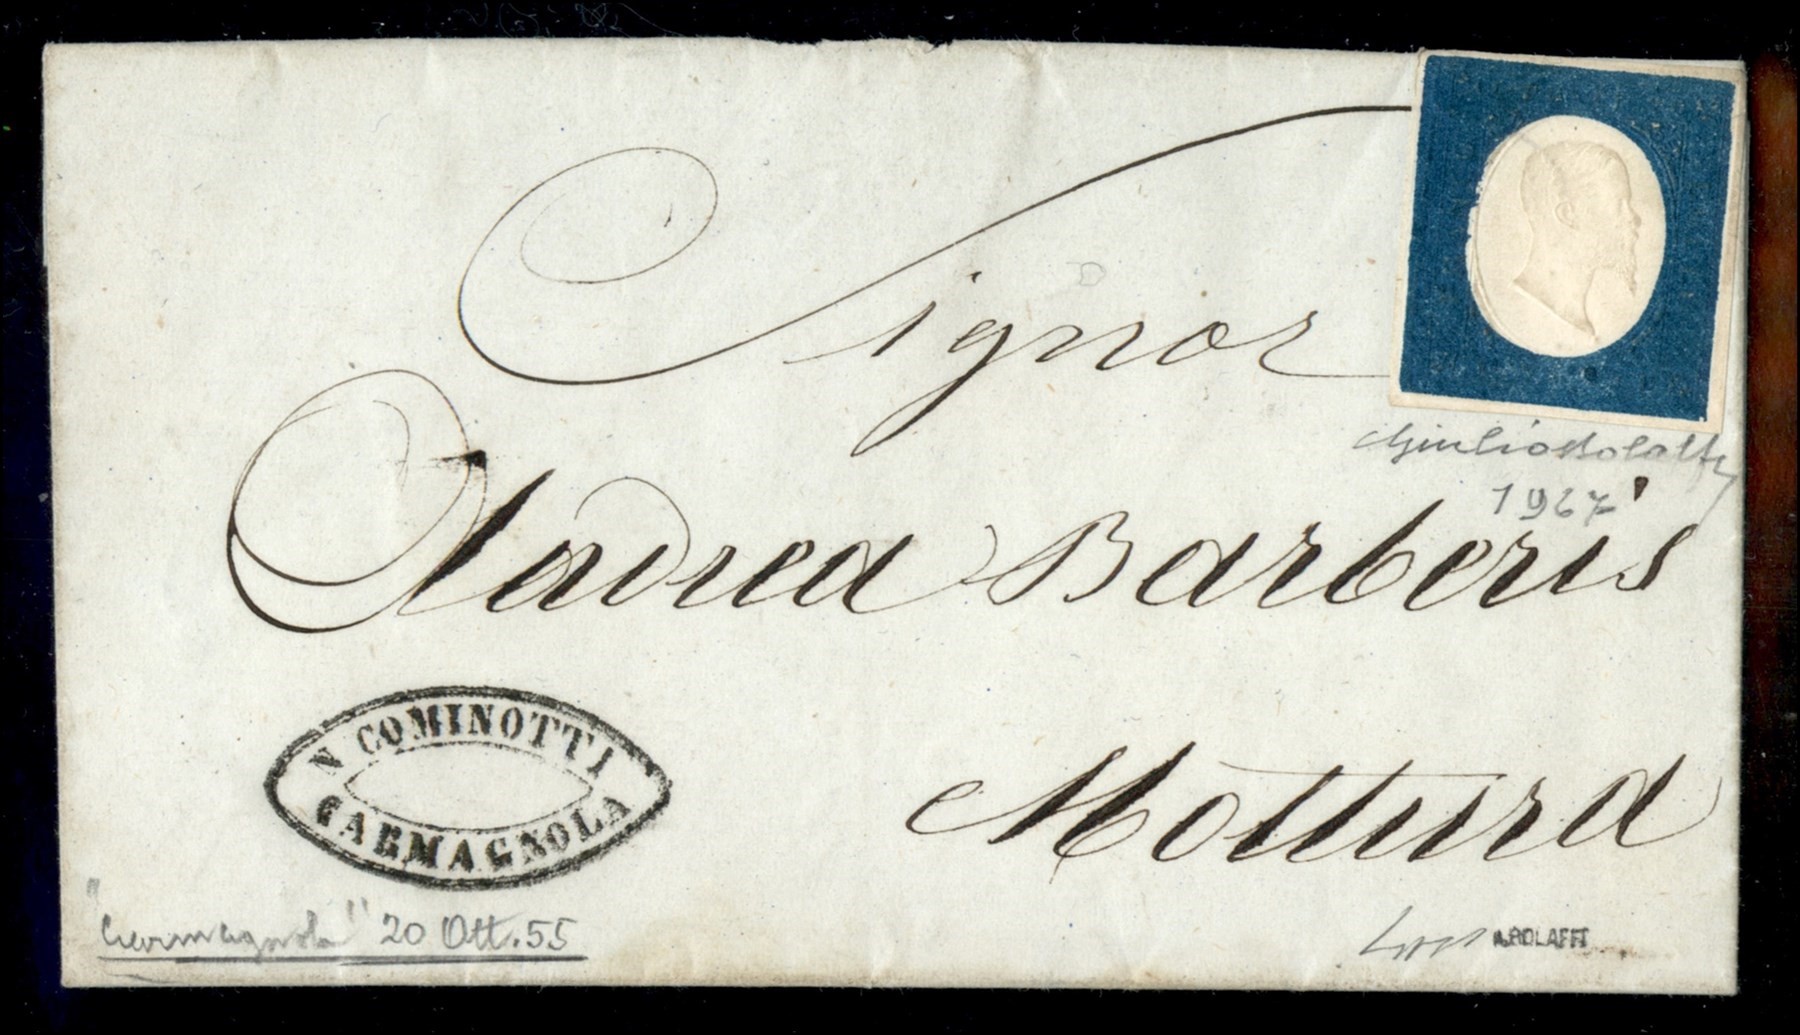 Signor
Andrea Barberis
Mottura
Giulio Bolaffi
1967
N COMINOTTI
CARMAGNOLA
"Carmagnola" 20 Ott. 55
A. BOLAFFI